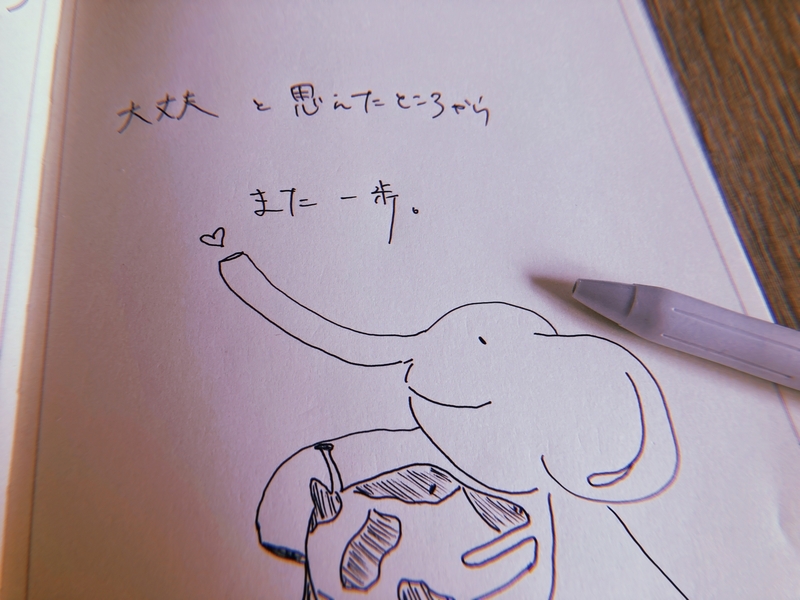 大丈夫 と思えたところから
また 一歩。